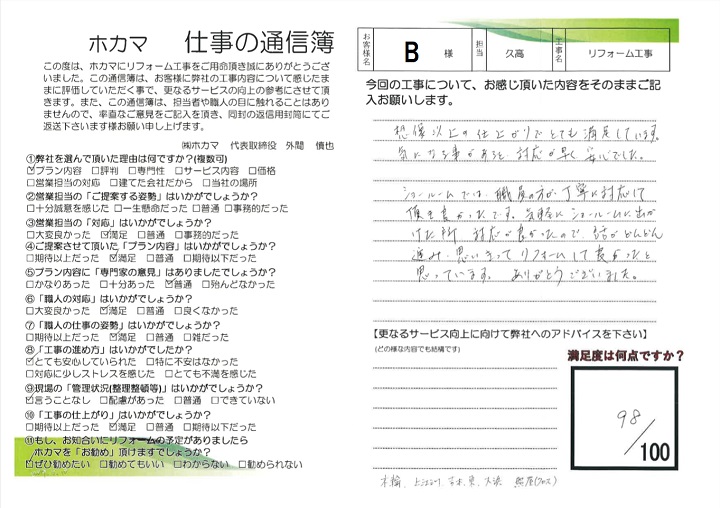 ホカマ 仕事の通信簿
この度は、ホカマにリフォーム工事をご用命頂き誠にありがとうござ
いました。この通信簿は、お客様に弊社の工事内容について感じたま
まに評価していただく事で、更なるサービスの向上の参考にさせて頂
きます。また、この通信簿は、担当者や職人の目に触れることはあり
ませんので、率直なご意見をご記入を頂き、同封の返信用封筒にてご
返送下さいます様お願い申し上げます。
㈱ホカマ 代表取締役 外間 慎也
①弊社を選んで頂いた理由は何ですか?(複数可)
☑プラン内容 □評判 □専門性 □サービス内容 □価格
□営業担当の対応 □建てた会社だから □当社の場所
②営業担当の「ご提案する姿勢」はいかがでしょうか?
□十分誠意を感じた □一生懸命だった □普通 □事務的だった
③営業担当の「対応」はいかがでしょうか?
□大変良かった ☑満足 □普通 □事務的だった
④ご提案させて頂いた「プラン内容」はいかがでしょうか?
□期待以上だった ☑満足 □普通 □期待以下だった
⑤プラン内容に「専門家の意見」はありましたでしょうか?
□かなりあった □十分あった ☑普通 □殆んどなかった
⑥「職人の対応」はいかがでしょうか?
□大変良かった ☑満足 □普通 □良くなかった
⑦「職人の仕事の姿勢」はいかがでしょうか?
□期待以上だった ☑満足 □普通 □雑だった
⑧「工事の進め方」はいかがでしたか?
☑とても安心していられた □特に不安はなかった
□対応に少しストレスを感じた □とても不満を感じた
⑨現場の「管理状況(整理整頓等)」はいかがでしょうか?
☑言うことなし □配慮があった □普通 □できていない
⑩「工事の仕上がり」はいかがでしょうか?
□期待以上だった ☑満足 □普通 □期待以下だった
⑪もし、お知合いにリフォームの予定がありましたら
ホカマを「お勧め」頂けますでしょうか?
☑ぜひ勧めたい □勧めてもいい □わからない □勧められない
お客様名 B 様 担当 久高 工事名 リフォーム工事
今回の工事について、お感じ頂いた内容をそのままご記
入お願いします。
想像以上の仕上がりでとても満足しています。
気になる事があると対応が早く安心でした。
ショールームでは、職員の方が丁寧に対応して
頂き良かったです。気軽にショールームに出か
けた所 対応が良かったので、話がどんどん
進み、思いきってリフォームして良かったと
思っています。 ありがとうございました。
【更なるサービス向上に向けて弊社へのアドバイスを下さい】
(どの様な内容でも結構です)
満足度は何点ですか?
98/100